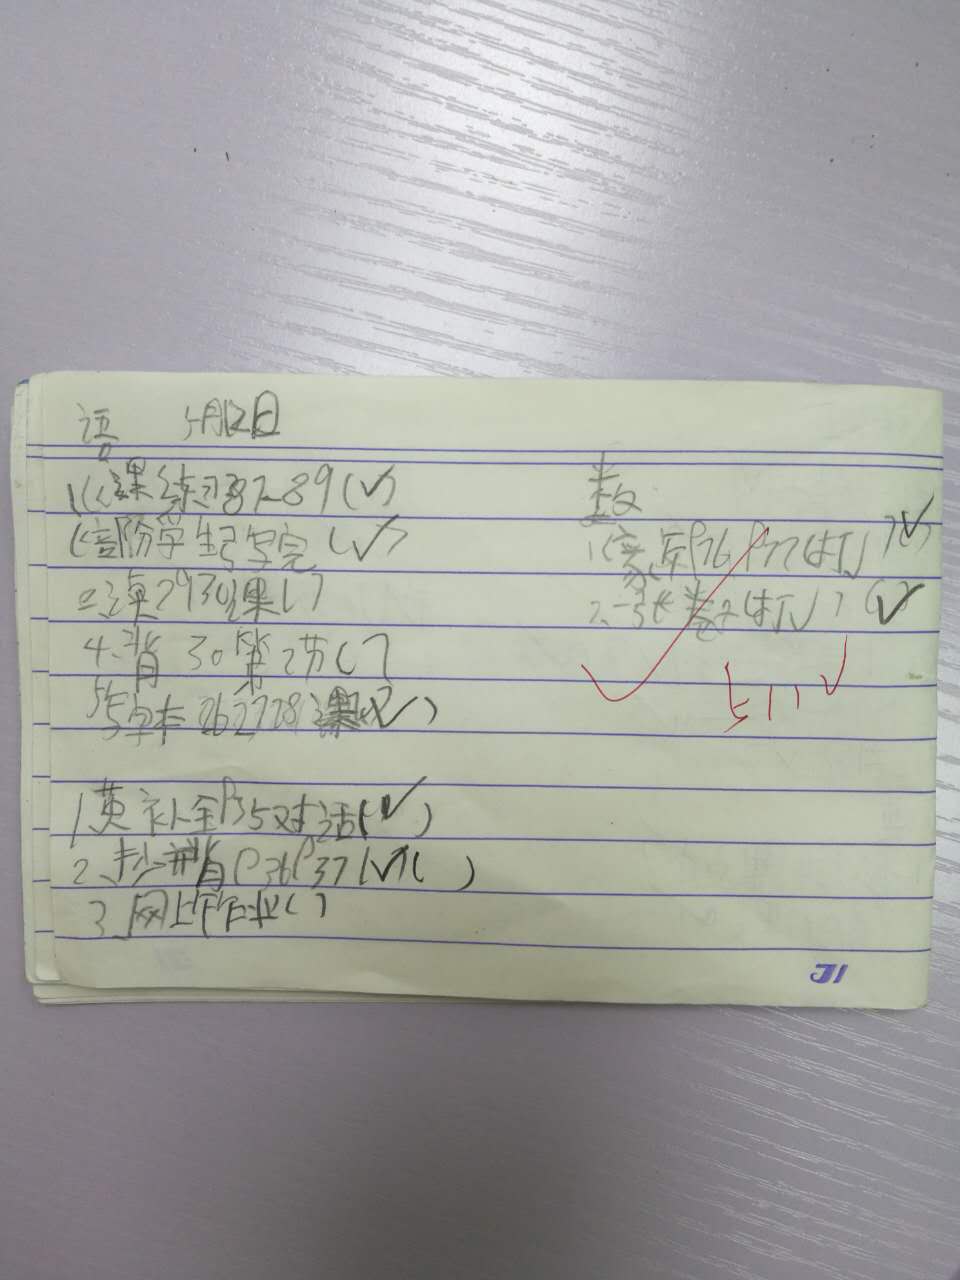 语 5月12日
1《课练习》87-89(✓)
(部份学生写完(✓)
3.读29 30课( )
4.背 30第2节( )
5写字本 26 27 28课(✓)
1英补全P35对话(✓)
2.抄背P36P37(✓)( )
3.网上作业( )
数
1.家.反P76 P77(打)(✓)
2.一张卷子(打)(✓)
JL